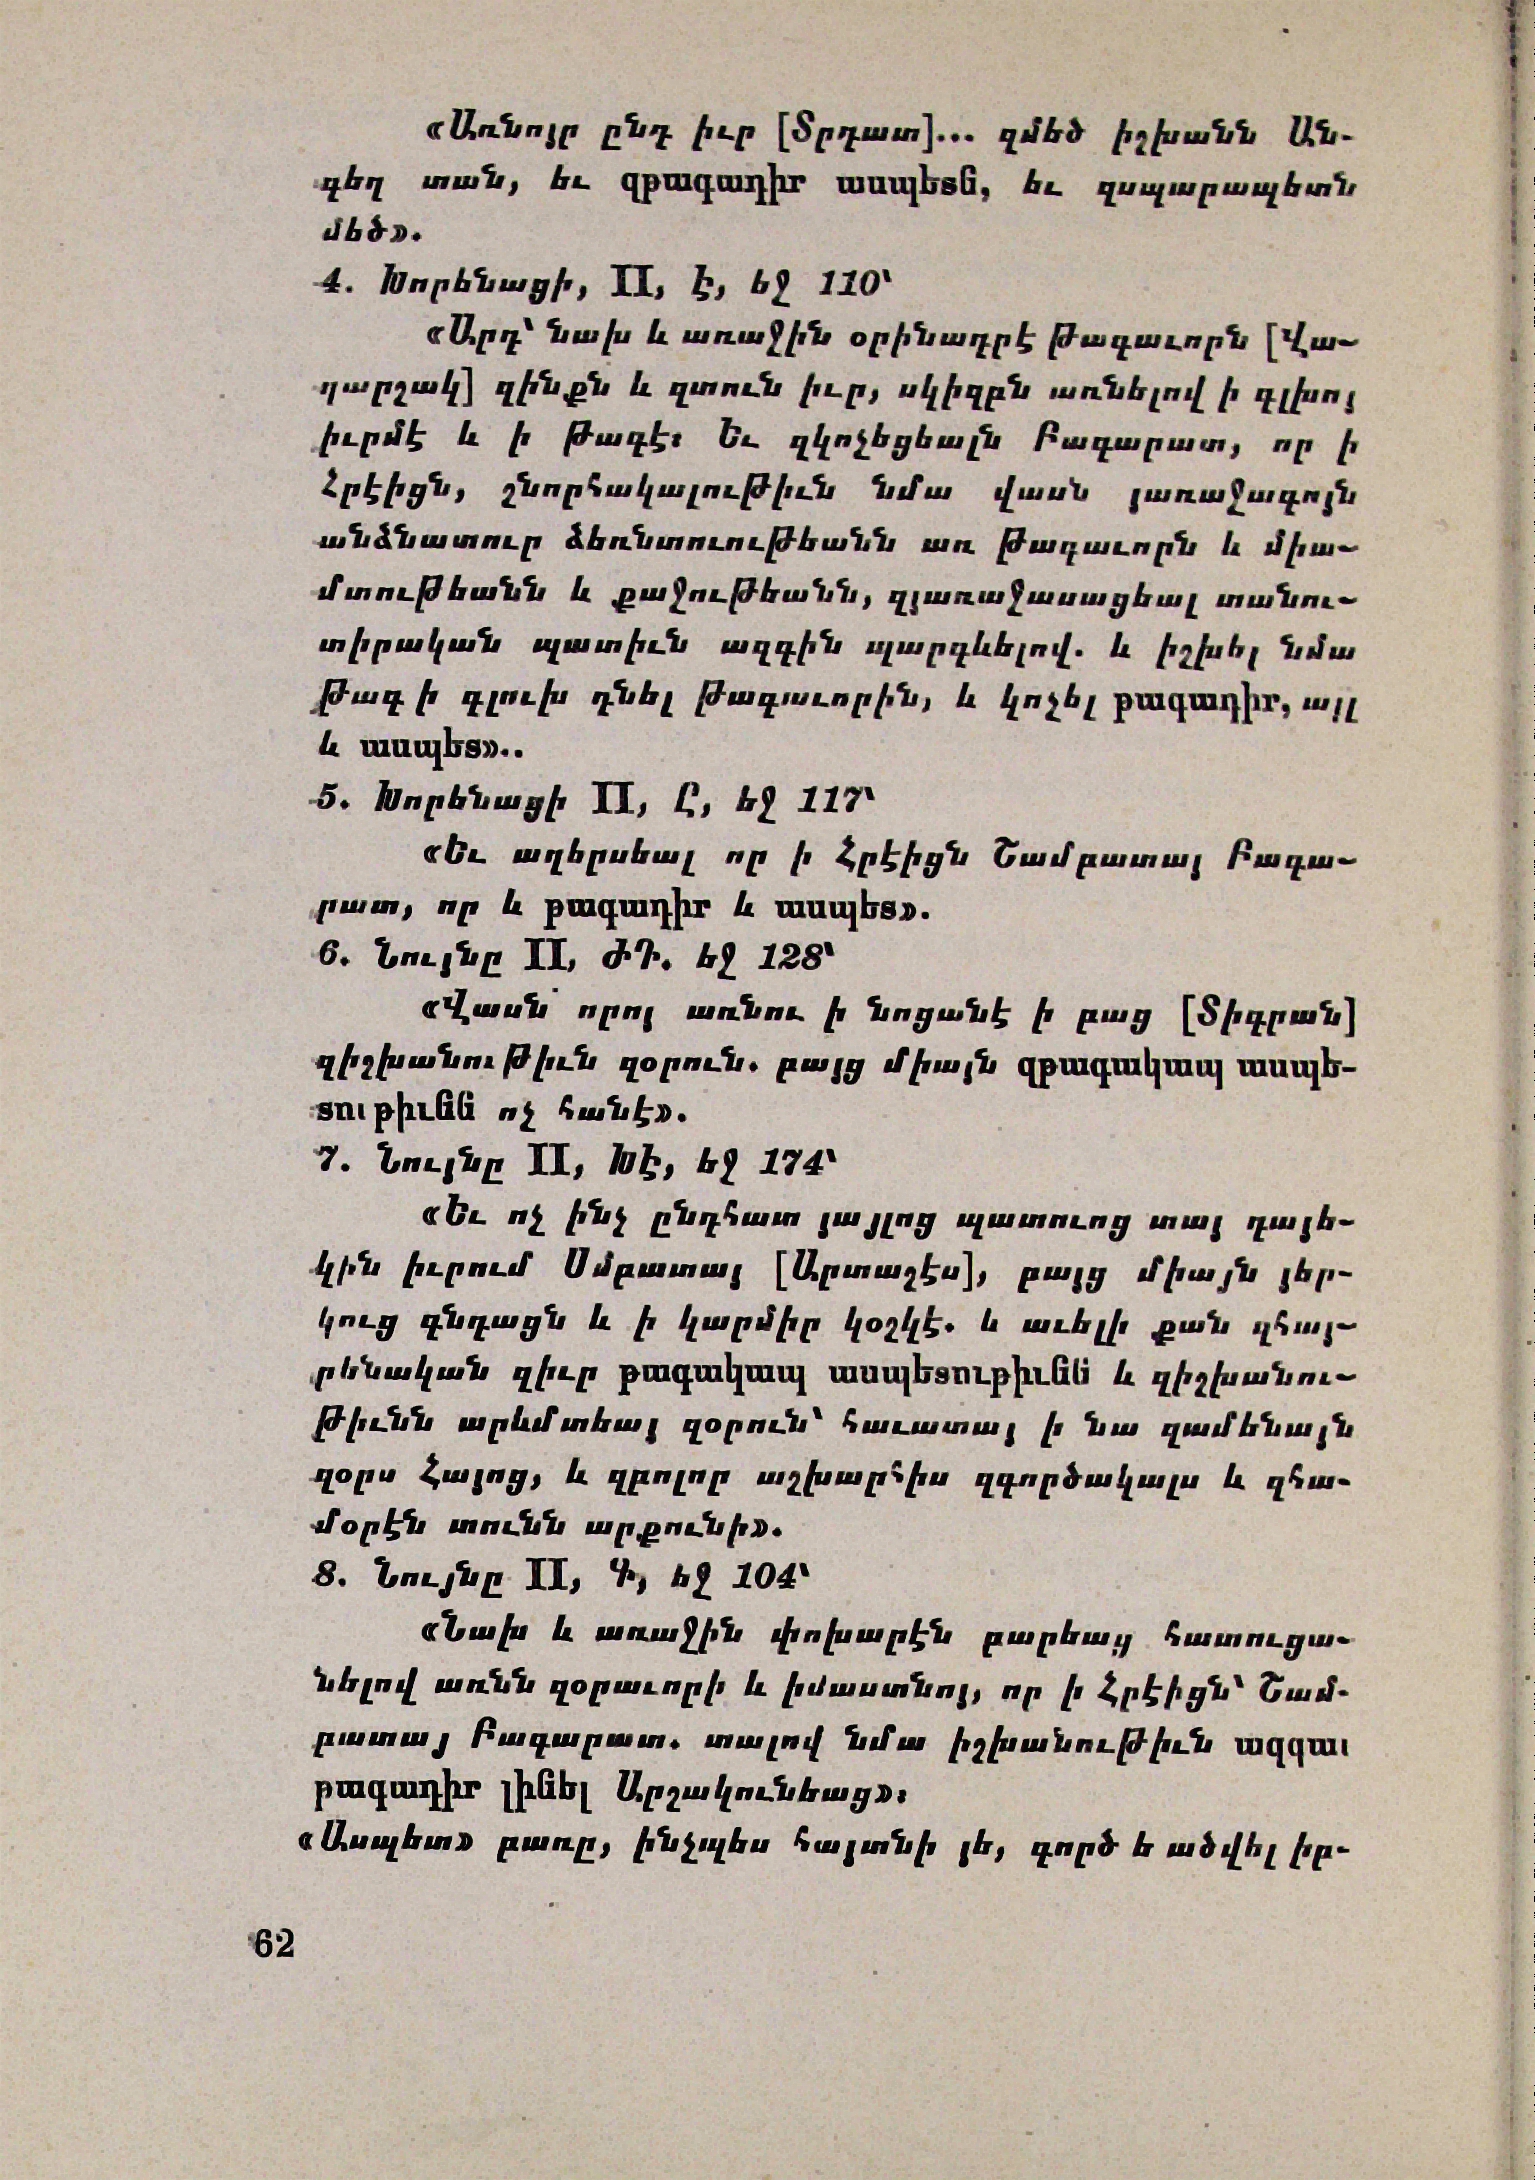 «Առնոյր ընդ իւր [Տրդատ]... զմեծ իշխանն Ան-
գեղ տան, եւ զթագադիր ասպետն, եւ զսպարապետն
մեծ».
4. Խորենացի, II, Է, եջ 110՝
«Արդ՝ նախ և առաջին օրինադրէ թագաւորն [Վա-
ղարշակ] զինքն և զտուն իւր, սկիզբն առնելով ի գլխոյ
իւրմէ և ի թագէ։ Եւ զկոչեցեալն Բագարատ, որ ի
Հրէիցն, շնորհակալութիւն նմա վասն յառաջագոյն
անձնատուր ձեռնտուութեանն առ թագաւորն և միա-
մտութեանն և քաջութեանն, զյառաջասացեալ տանու-
տիրական պատիւն ազգին պարգևելով. և իշխել նմա
թագ ի գլուխ դնել թագաւորին, և կոչել թագադիր, այլ
և ասպետ»..
5. Խորենացի II, Ը, եջ 117՝
«Եւ աղերսեալ որ ի Հրէիցն Շամբատայ Բագա-
րատ, որ և թագադիր և ասպետ».
6. Նույնը II, ԺԴ. եջ 128՝
«Վասն որոյ առնու ի նոցանէ ի բաց [Տիգրան]
զիշխանութիւն զօրուն. բայց միայն զթագակապ ասպե-
տութիւնն ոչ հանէ».
7. Նույնը II, ԽԷ, եջ 174՝
«Եւ ոչ ինչ ընդհատ յայլոց պատուոց տայ դայե-
կին իւրում Սմբատայ [Արտաշէս], բայց միայն յեր-
կուց գնդացն և ի կարմիր կօշկէ. և աւելի քան զհայ-
րենական զիւր թագակապ ասպետութիւնն և զիշխանու-
թիւնն արևմտեայ զօրուն՝ հաւատայ ի նա զամենայն
զօրս Հայոց, և զբոլոր աշխարհիս զգործակալս և զհա-
մօրէն տունն արքունի».
8. Նույնը II, Գ, եջ 104՝
«Նախ և առաջին փոխարէն բարեաց հատուցա-
նելով առնն զօրաւորի և իմաստնոյ, որ ի Հրէիցն՝ Շամ-
բատայ Բագարատ. տալով նմա իշխանութիւն ազգաւ
թագադիր լինել Արշակունեաց»։
«Ասպետ» բառը, ինչպես հայտնի յե, գործ ե ածվել իր-
62